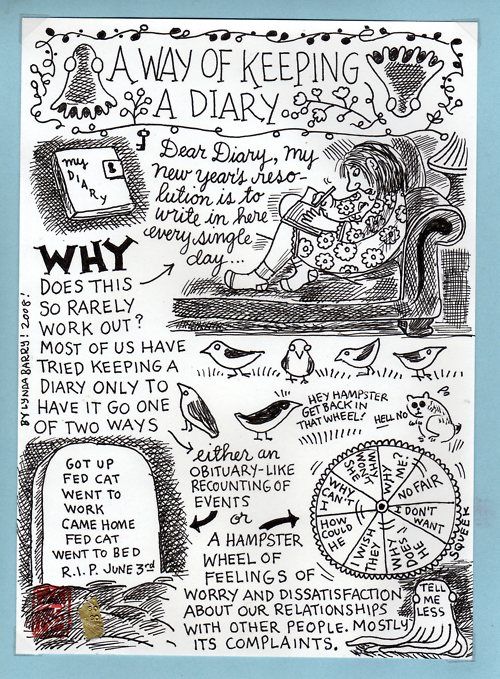 A WAY OF KEEPING
A DIARY
my
DIARY
Dear Diary, my
new year's reso-
lution is to
write in here
every single
day...
WHY
DOES THIS
SO RARELY
WORK OUT?
MOST OF US HAVE
TRIED KEEPING A
DIARY ONLY TO
HAVE IT GO ONE
OF TWO WAYS
BY LYNDA BARRY! 2008!
HEY HAMPSTER
GET BACK IN
THAT WHEEL!
HELL NO
either an
OBITUARY-LIKE
RECOUNTING OF
EVENTS
or
A HAMPSTER
WHEEL OF
FEELINGS OF
WORRY AND DISSATISFACTION
ABOUT OUR RELATIONSHIPS
WITH OTHER PEOPLE. MOSTLY
ITS COMPLAINTS.
GOT UP
FED CAT
WENT TO
WORK
CAME HOME
FED CAT
WENT TO BED
R.I.P. JUNE 3rd
WHY
ME?
NO FAIR
I DON'T
WANT
WHY DOES
HE
I WISH
THEY
HOW
COULD
HE
WHY
CAN'T I
SQUEEK
TELL
ME
LESS